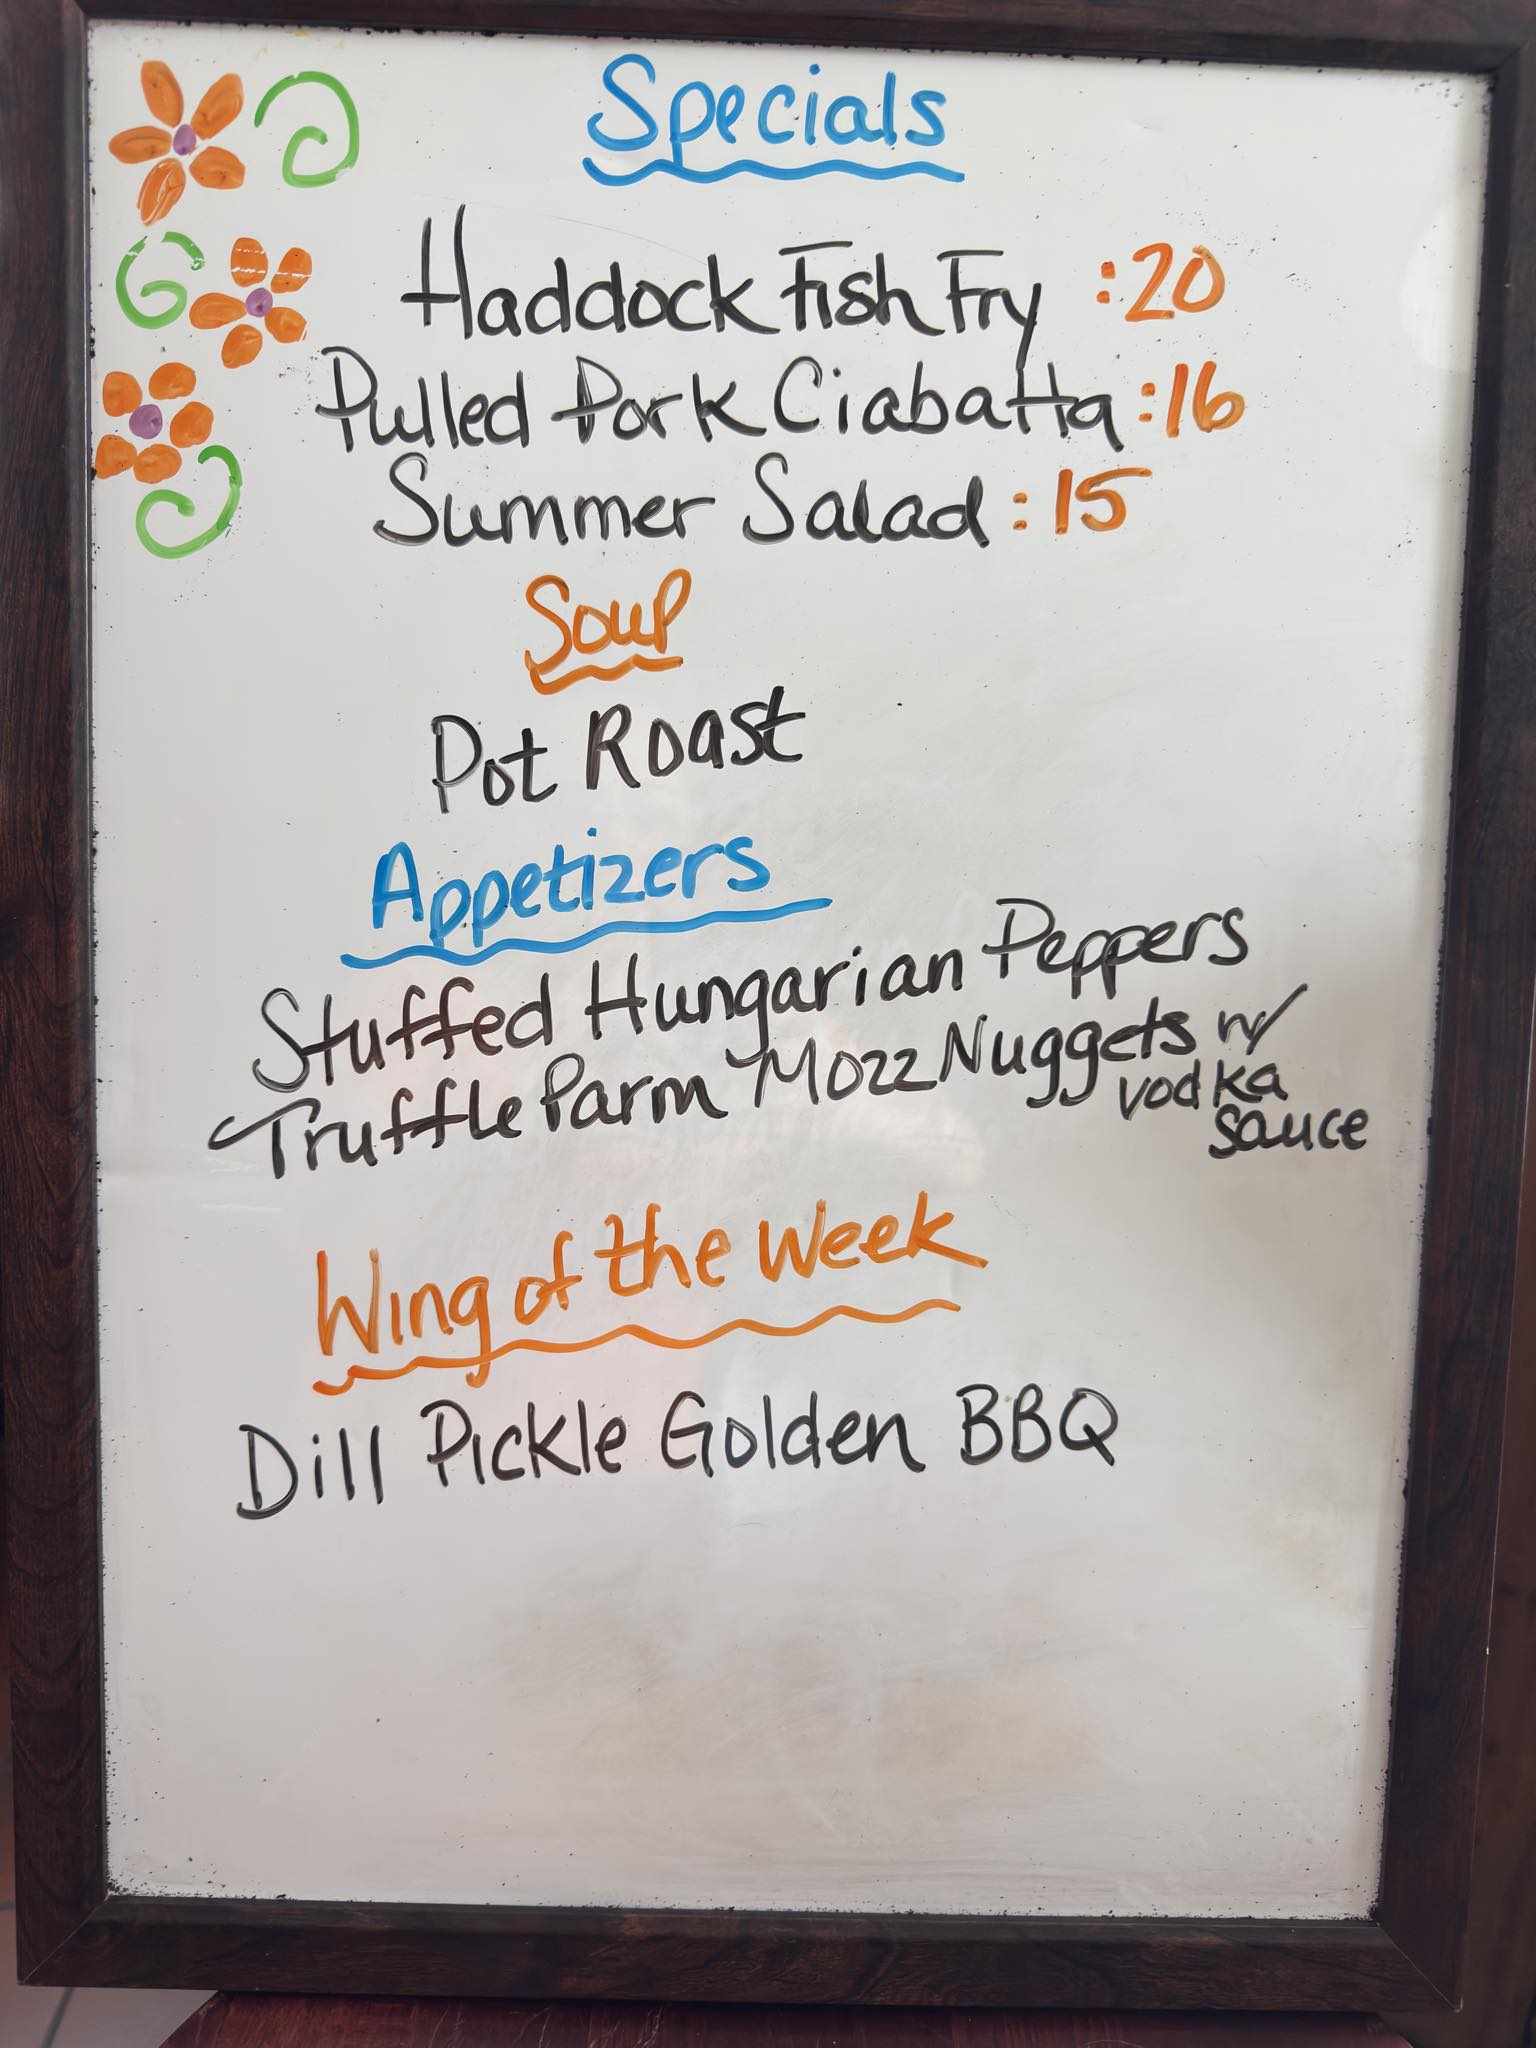 Specials
Haddock Fish Fry :20
Pulled Pork Ciabatta :16
Summer Salad :15
Soup
Pot Roast
Appetizers
Stuffed Hungarian Peppers
Truffle Parm Mozz Nuggets w/
vodka
sauce
Wing of the Week
Dill Pickle Golden BBQ